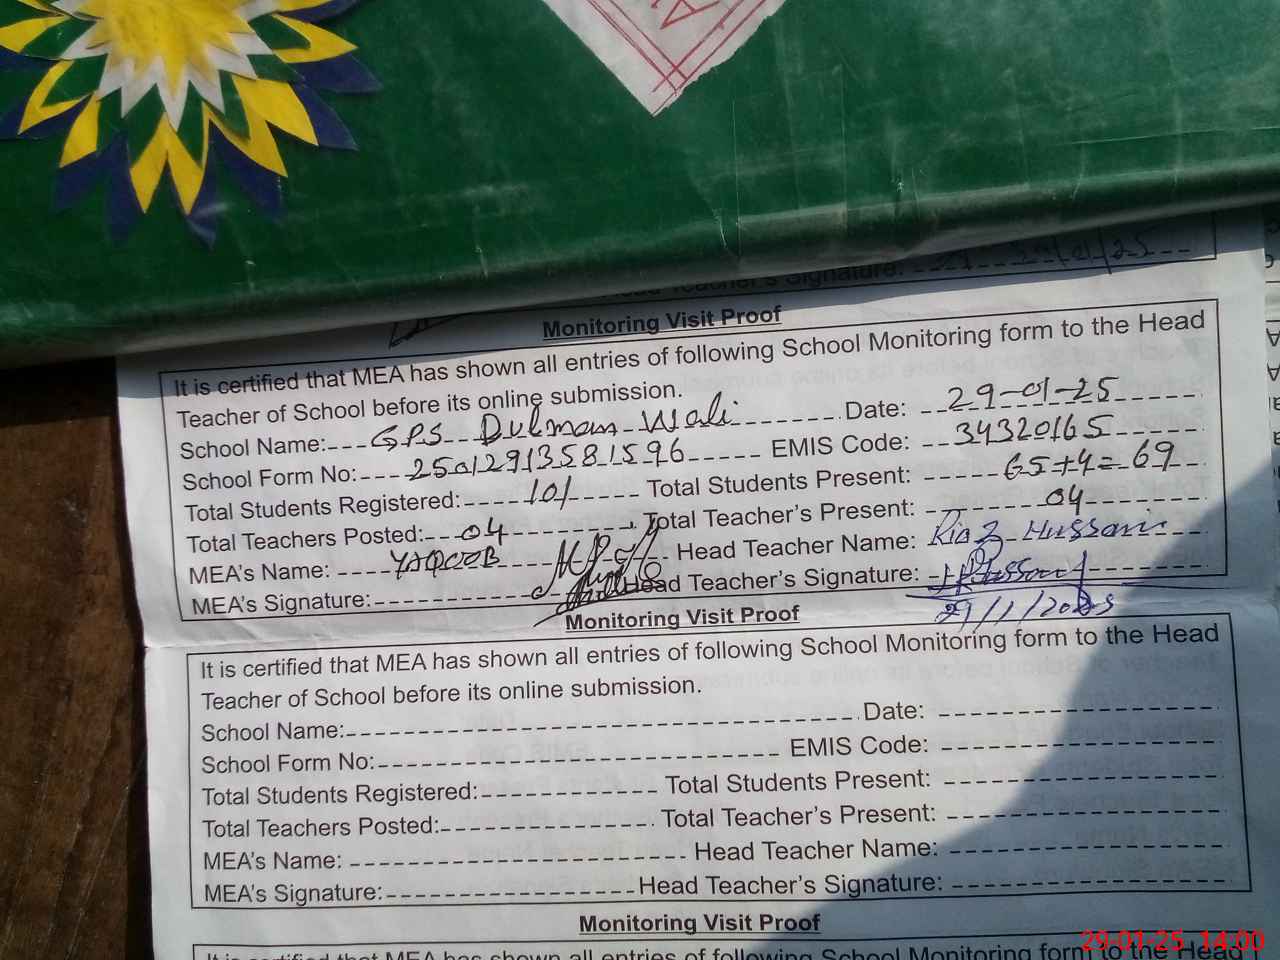 Head Teacher's Signature: 29/01/25
Monitoring Visit Proof
It is certified that MEA has shown all entries of following School Monitoring form to the Head
Teacher of School before its online submission.
School Name: GPS Dulmam Wali Date: 29-01-25
School Form No: 2501291358 1596 EMIS Code: 34320165
Total Students Registered: 101 Total Students Present: 65+4=69
Total Teachers Posted: 04 Total Teacher's Present: 04
MEA's Name: YAQOOB Head Teacher Name: Riaz Hussain
MEA's Signature: Head Teacher's Signature: Hussain
29/1/2025
Monitoring Visit Proof
It is certified that MEA has shown all entries of following School Monitoring form to the Head
Teacher of School before its online submission.
School Name: Date:
School Form No: EMIS Code:
Total Students Registered: Total Students Present:
Total Teachers Posted: Total Teacher's Present:
MEA's Name: Head Teacher Name:
MEA's Signature: Head Teacher's Signature:
Monitoring Visit Proof
It is certified that MEA has shown all entries of following School Monitoring form to the Head
29-01-25 14:00